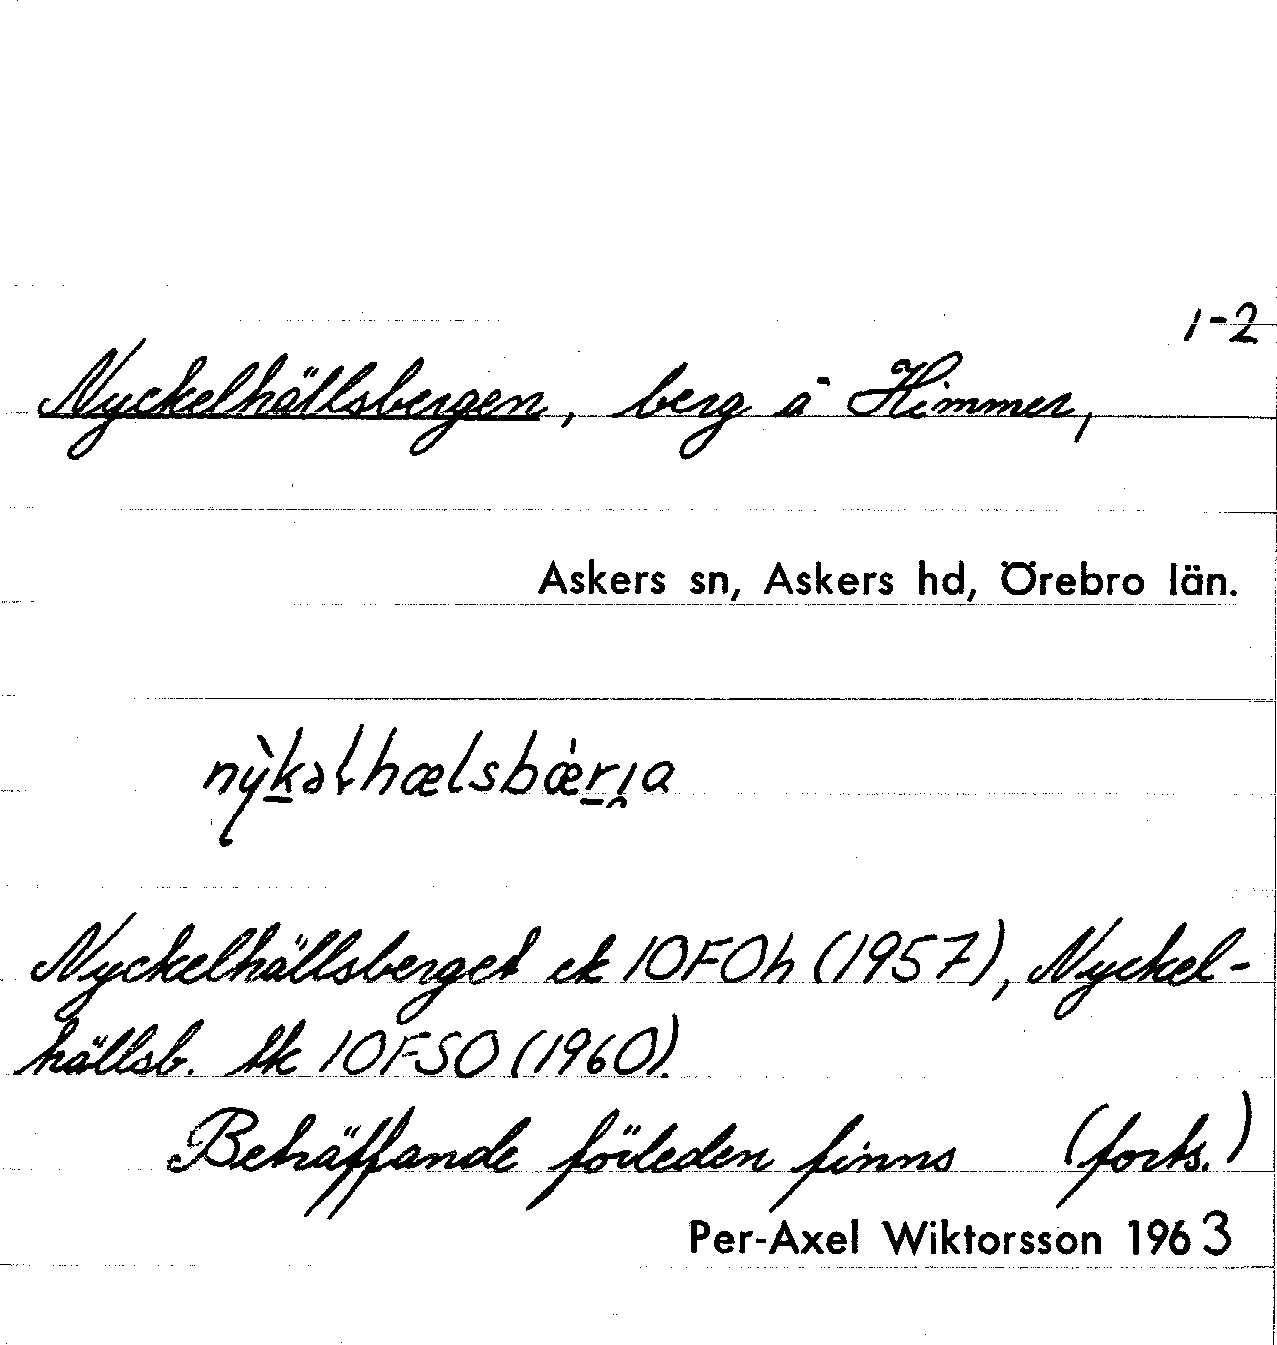 1-2
Nyckelhällsbergen, berg å Himmer,
Askers sn, Askers hd, Örebro län.
nỳkəƚhælsbæ̀rı̯a
Nyckelhällsberget ek 10F0h (1957), Nyckel-
hällsb. tk 10FSO (1960).
Beträffande förleden finns (forts.)
Per-Axel Wiktorsson 1963